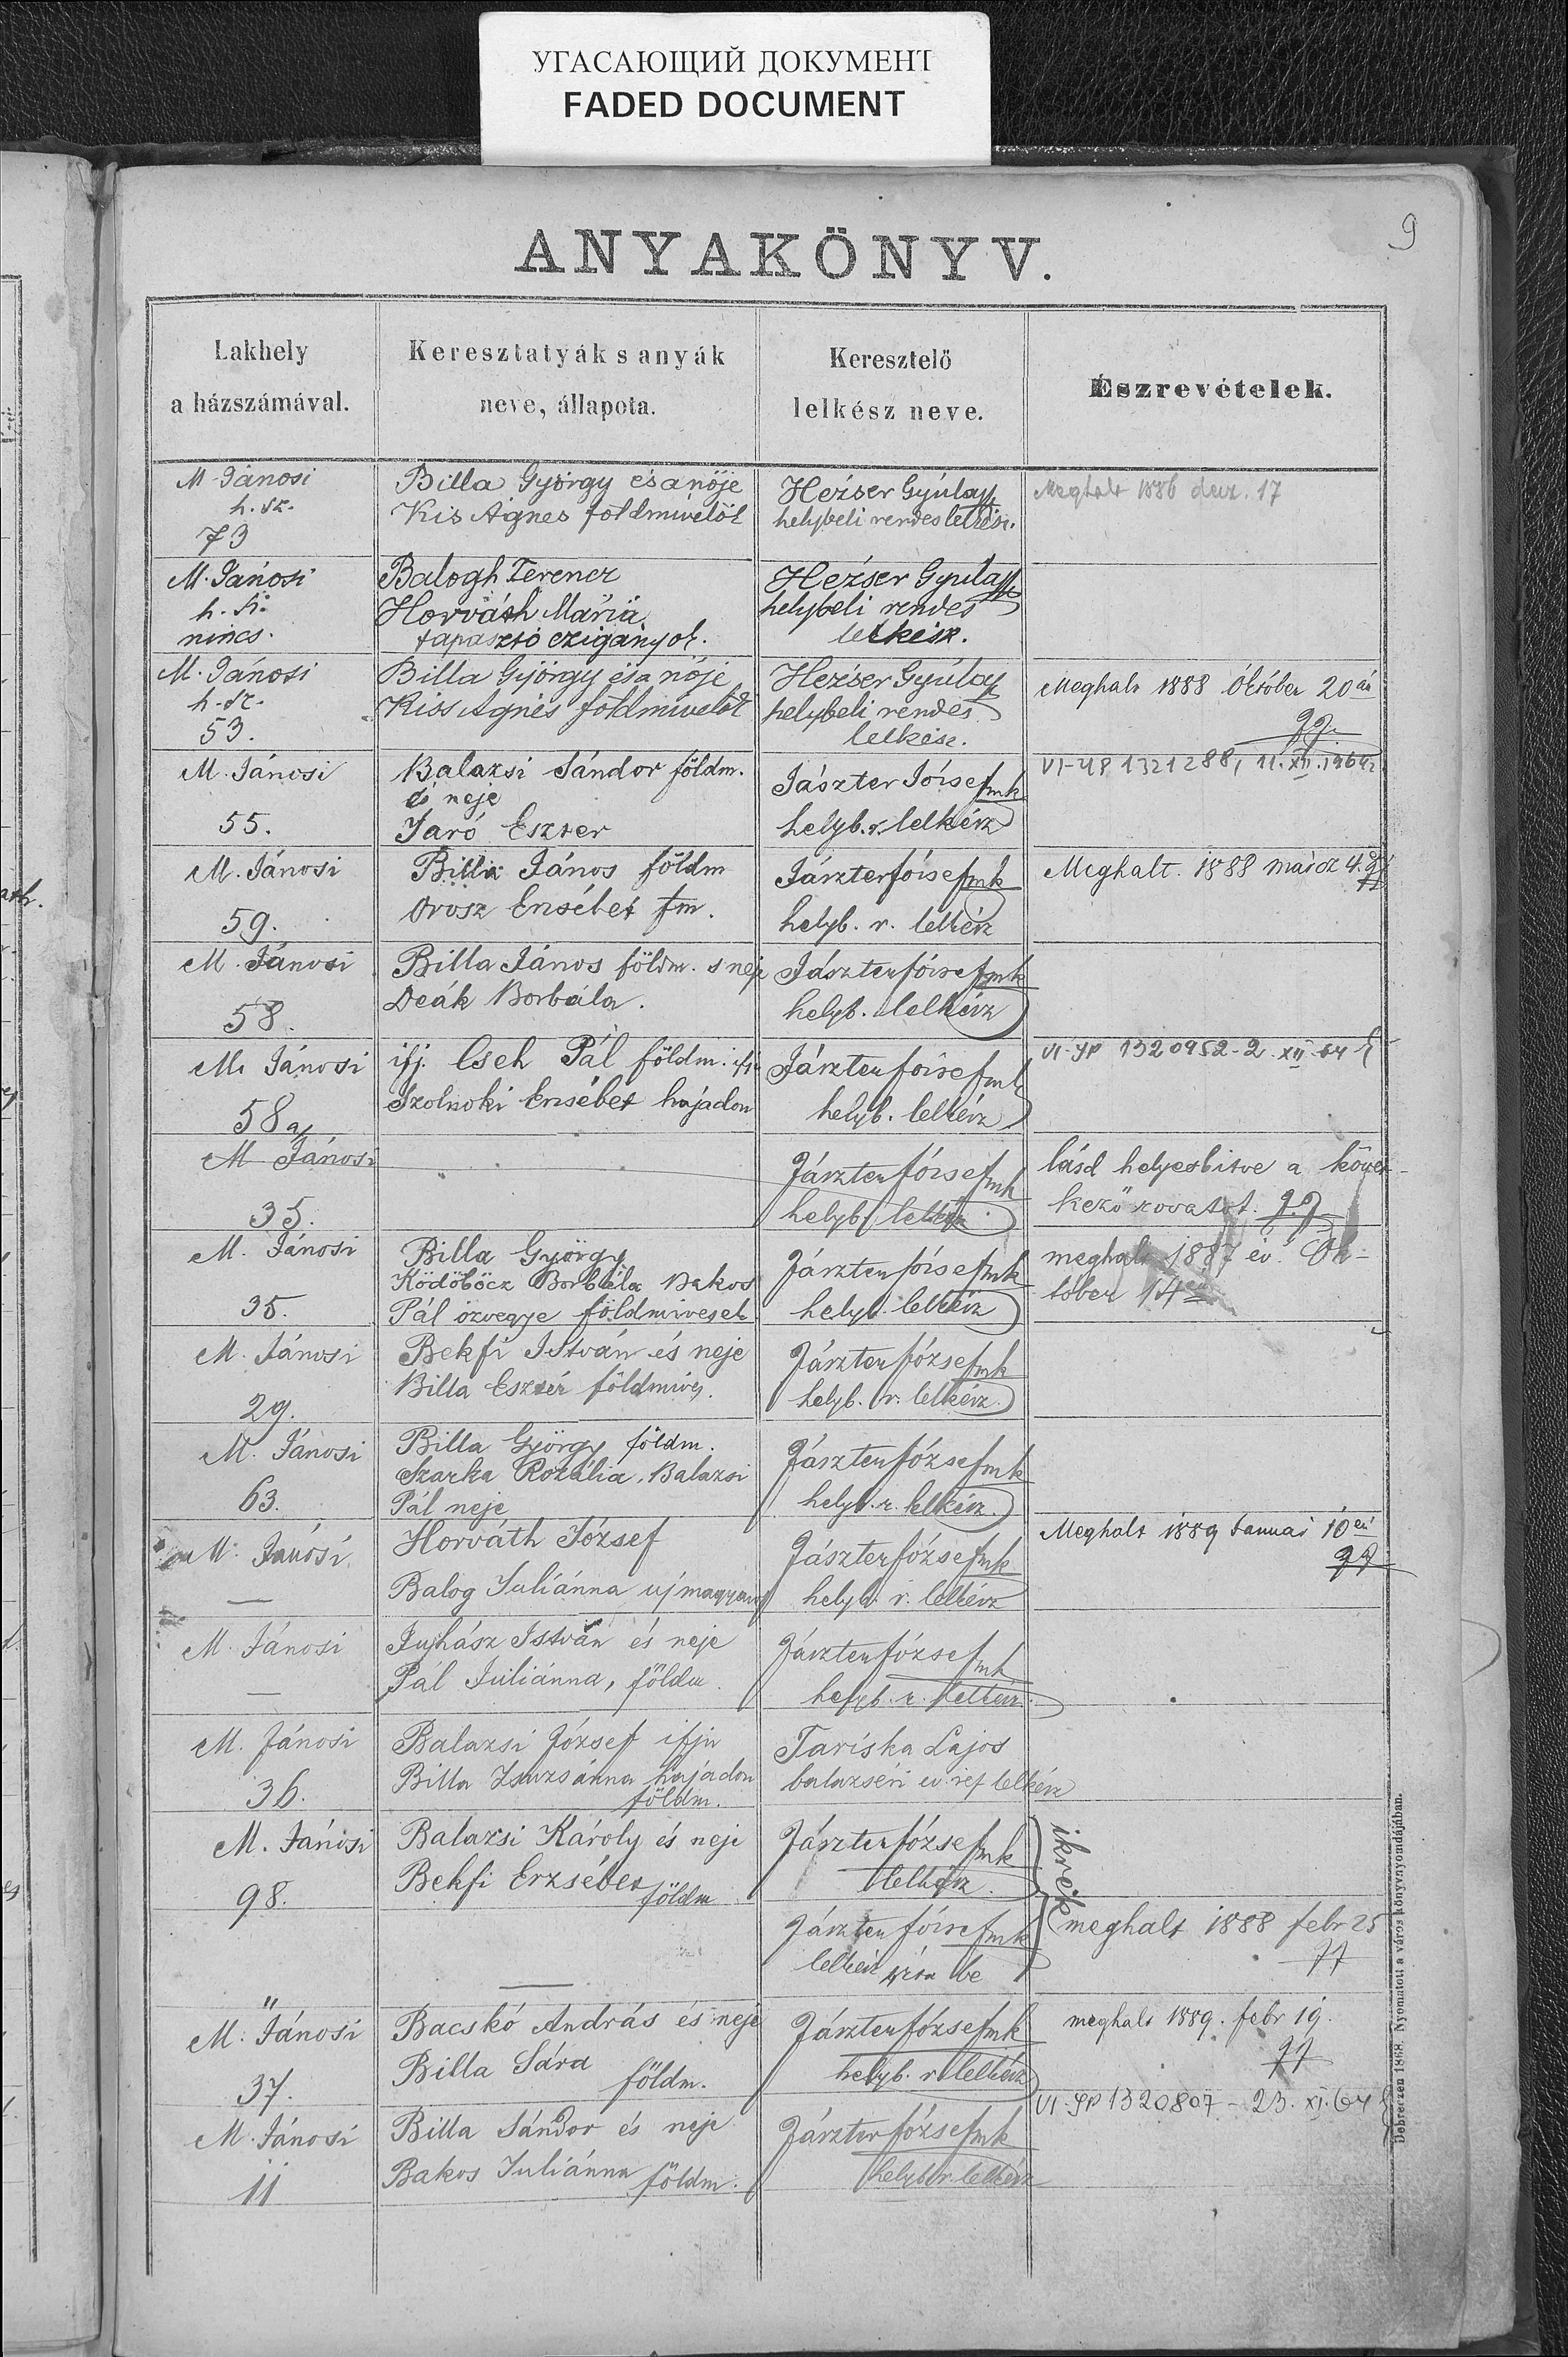 УГАСАЮЩИЙ ДОКУМЕНТ
FADED DOCUMENT
9
ANYAKÖNYV.
Lakhely
a házszámával.
Keresztatyák s anyák
neve, állapota.
Keresztelö
lelkész neve.
Észrevételek.
M. Jánosi
h. sz.
73
Billa György és a nöje
Kis Ágnes földmivelök
Hézser Gyúla
helybeli rendes lelkész.
Meghalt 1886 decz. 17
M. Jánosi
h. sz.
nincs.
Balogh Ferencz
Horváth Mária
tapasztó czigányok.
Hézser Gyula
helybeli rendes
lelkész.
M. Jánosi
h. sz.
53.
Billa György és a nöje
Kiss Ágnes földmivelök
Hézser Gyúla
helybeli rendes
lelkész.
Meghalt 1888 Október 20án
M. Jánosi
55.
Balazsi Sándor földm.
és neje
Jaró Eszter
Jászter Jóisef mk
helyb. r. lelkész
VI-ЧР 1321288, 11.XII.1964
M. Jánosi
59.
Billa János földm
Orosz Ersébet fm.
Jászter Jóisef mk
helyb. r. lelkész
Meghalt. 1888 márcz 4.
M. Jánosi
58.
Billa János földm. s neje
Deák Borbála.
Jászter Jóisef mk
helyb. lelkész
M. Jánosi
58 a/
ifj. Cseh Pál földm. ifju
Szolnoki Ersébet hajadon
Jászter Jóisef mk
helyb. lelkész
VI-ЯР 1320952-2.XII.64
M Jánosi
35.
Jászter Jóisef mk
helyb. lelkész
lásd helyesbitve a követ-
kező rovatot.
M. Jánosi
35.
Billa György
Ködöböcz Borbála Bakos
Pál özvegye földmivesek
Jászter Jóisef mk
helyb. lelkész
meghalt 1887 év Ok-
tóber 14én
M. Jánosi
29.
Bekfi István és neje
Billa Eszter földmives.
Jászter József mk
helyb. r. lelkész.
M. Jánosi
63.
Billa György földm.
Szarka Rozália. Balazsi
Pál neje
Jászter József mk
helyb. r. lelkész.
M. Jánosi
—
Horváth József
Balog Juliánna ujmagyarok
Jászter József mk
helyb. r. lelkész
Meghalt 1889 Januar 10én
M. Jánosi
—
Juhász István és neje
Pál Juliánna, földm.
Jászter József mk
helyb. r. lelkész.
M. Jánosi
36.
Balazsi József ifju
Billa Zsuzsánna hajadon
földm.
Tariska Lajos
balazséri ev. ref lelkész
M. Jánosi
98.
Balazsi Károly és neje
Bekfi Erzsébet földm
Jászter József mk
lelkész.
ikrek
"
—
Jászter Jóisef mk
lelkész irta be
meghalt 1888 febr 25
M. Jánosi
37.
Bacskó András és neje
Billa Sára földm.
Jászter József mk
helyb. r lelkész
meghalt 1889. febr 19.
M. Jánosi
11
Billa Sándor és neje
Bakos Juliánna földm.
Jászter József mk
helyb r. lelkész
VI-ЯР 1320807-23.XI.64
Debreczen 1868. Nyomatott a város könyvnyomdájában.